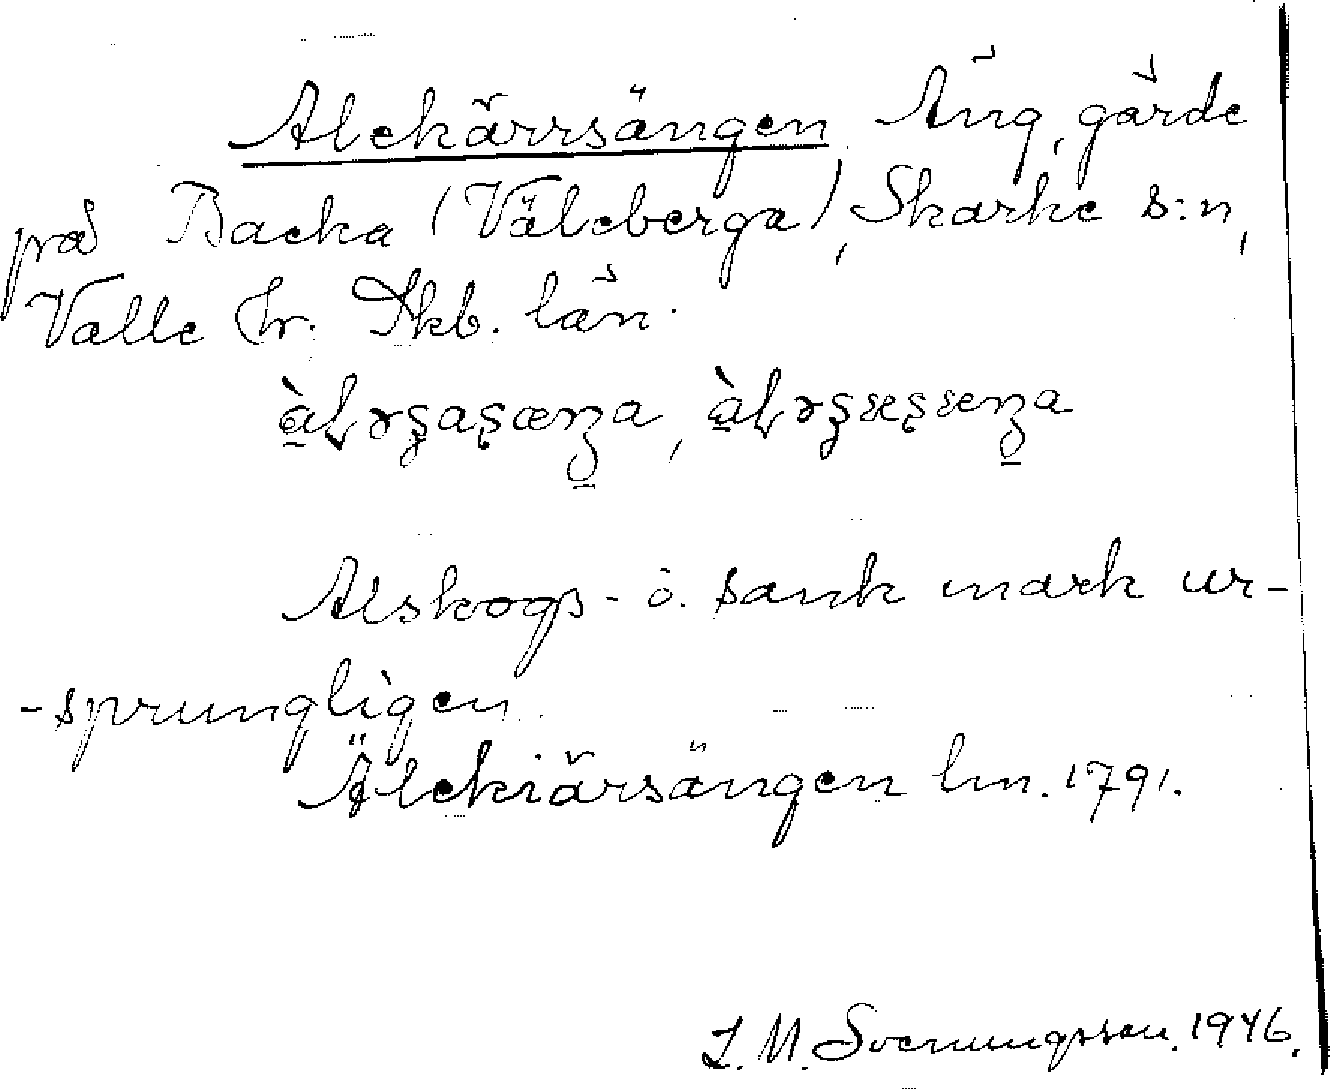 Alekärrsängen Äng, gärde
på Backa (Väleberga), Skarke s:n,
Valle hr. Skb. län.
Alskogs- o. sank mark ur-
-sprungligen.
Älekiärsängen lm. 1791.
I. M. Svenungsson. 1946.